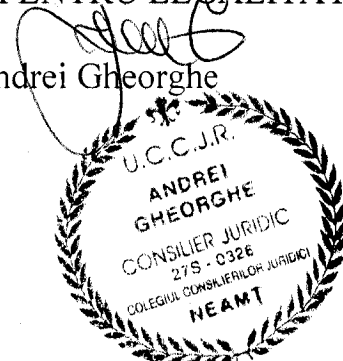 PENTRU LEGALITAT
ndrei Gheorghe
U.C.C.J.R.
ANDREI
GHEORGHE
CONSILIER JURIDIC
27S - 0326
COLEGIUL CONSILIERILOR JURIDICI
NEAMT